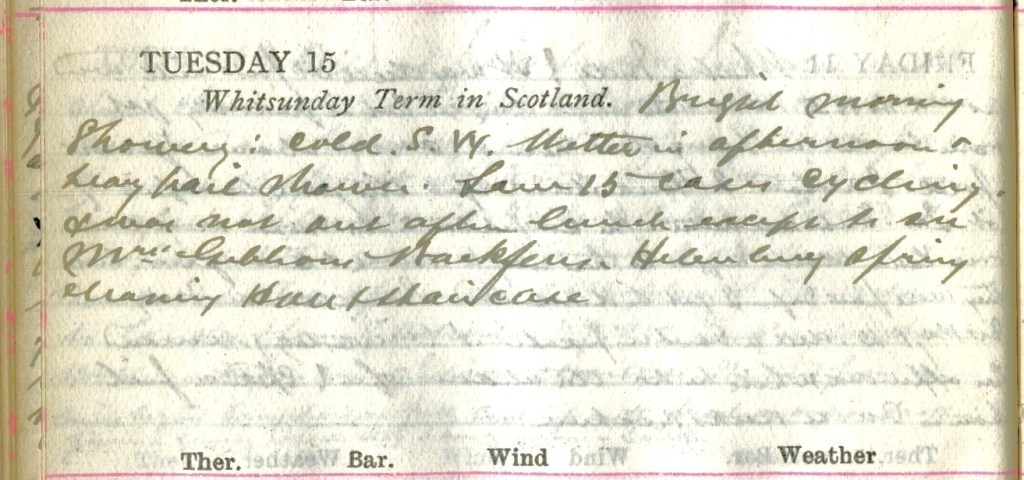 TUESDAY 15
Whitsunday Term in Scotland. Bright morning
Showery: cold. S.W. Wetter in afternoon &
heavy hail shower. Saw 15 cases cycling.
I was not out after lunch except to see
Mrs Gibbons Rockferry. Helen busy spring
cleaning Hall & staircase
Ther. Bar. Wind Weather